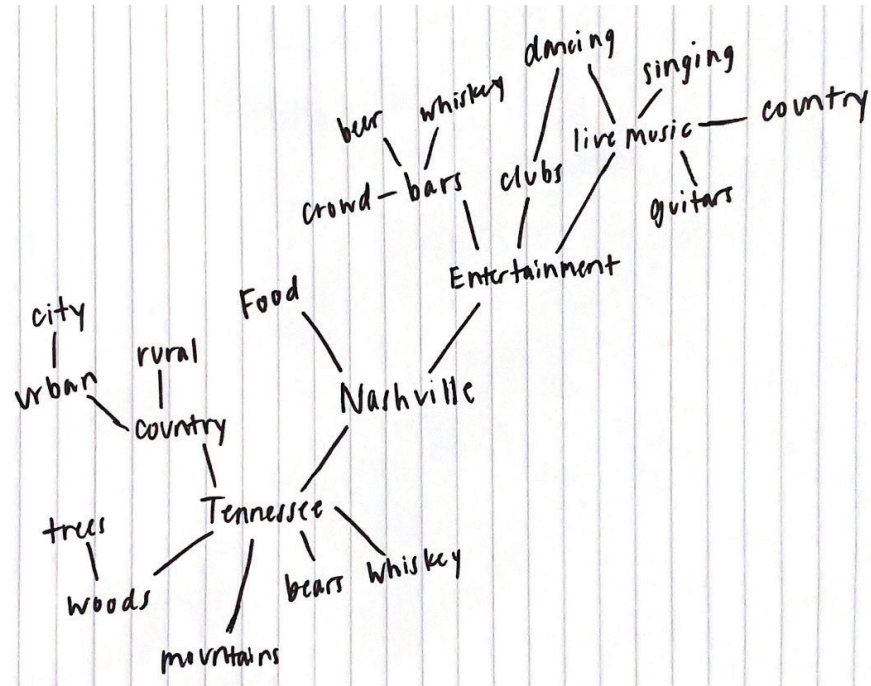 dancing
singing
beer
whiskey
live music
country
crowd
bars
clubs
guitars
Entertainment
Food
city
rural
urban
Nashville
country
Tennessee
trees
woods
bears
whiskey
mountains